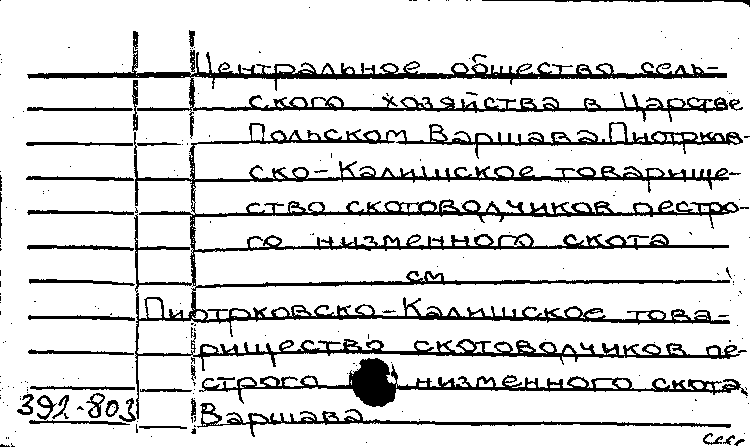 Центральное общество сель-
ского хозяйства в Царстве
Польском Варшава. Пиотрков-
ско-Калишское товарище-
ство скотоводчиков пестро-
го низменного скота
см
Пиотрковско-Калишское това-
рищество скотоводчиков пе-
строго низменного скота,
392-803 Варшава